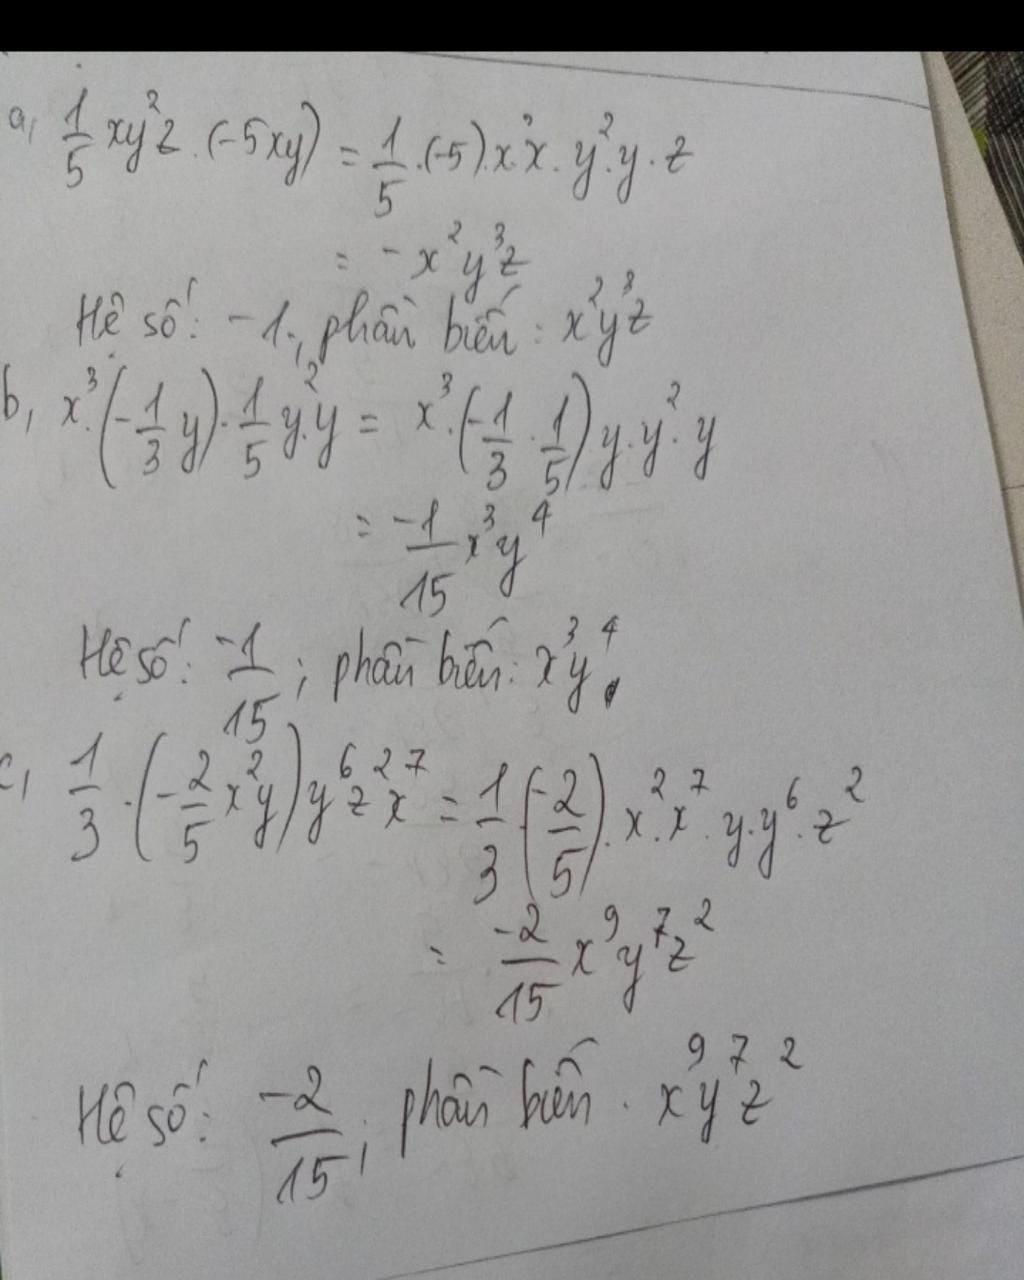 a, 1/5 xy²z.(-5xy) = 1/5.(-5).x.x.y².y.z
= -x²y³z
Hệ số: -1; phần biến: x²y³z
b, x³.(-1/3 y).1/5 y².y = x³.(-1/3.1/5).y.y².y
= -1/15 x³y⁴
Hệ số: -1/15; phần biến: x³y⁴.
c, 1/3.(-2/5 x²y)y⁶z²x⁷ = 1/3.(-2/5).x².x⁷.y.y⁶.z²
= -2/15 x⁹y⁷z²
Hệ số: -2/15; phần biến. x⁹y⁷z²